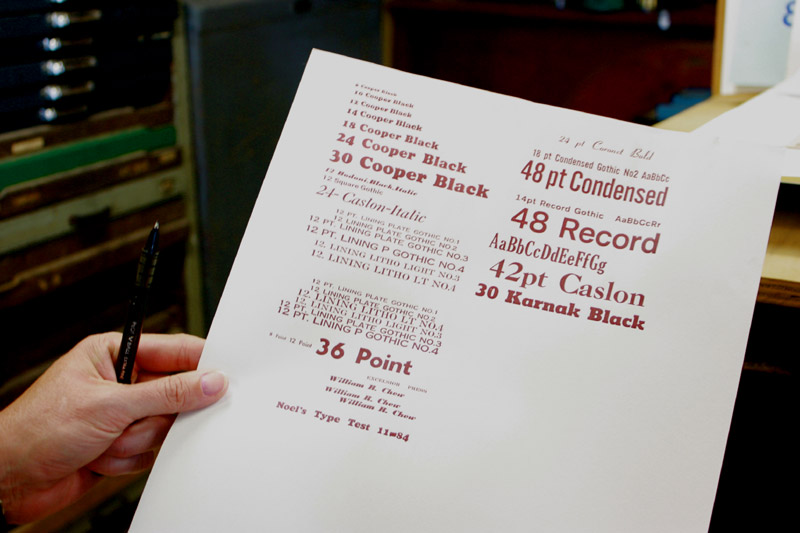 8 Cooper Black
10 Cooper Black
12 Cooper Black
14 Cooper Black
18 Cooper Black
24 Cooper Black
30 Cooper Black
12 Bodoni Black Italic
12 Square Gothic
24- Caslon-Italic
12 PT. LINING PLATE GOTHIC NO.1
12 PT. LINING PLATE GOTHIC NO.2
12 PT. LINING PLATE GOTHIC NO.3
12 PT. LINING P GOTHIC NO.4
12. LINING LITHO LIGHT NO.3
12. LINING LITHO LT NO.4
12 PT. LINING PLATE GOTHIC NO.1
12 PT. LINING PLATE GOTHIC NO.2
12. LINING LITHO LT NO.4
12. LINING LITHO LIGHT NO.3
12 PT. LINING PLATE GOTHIC NO.3
12 PT. LINING P GOTHIC NO.4
Point 12 Point 36 Point
EXCELSIOR PRESS
William R. Chew
William R. Chew
William R. Chew
Noel's Type Test 11=84
24 pt Coronet Bold
18 pt Condensed Gothic No2 AaBbCc
48 pt Condensed
14pt Record Gothic AaBbCcRr
48 Record
AaBbCcDdEeFfGg
42pt Caslon
30 Karnak Black